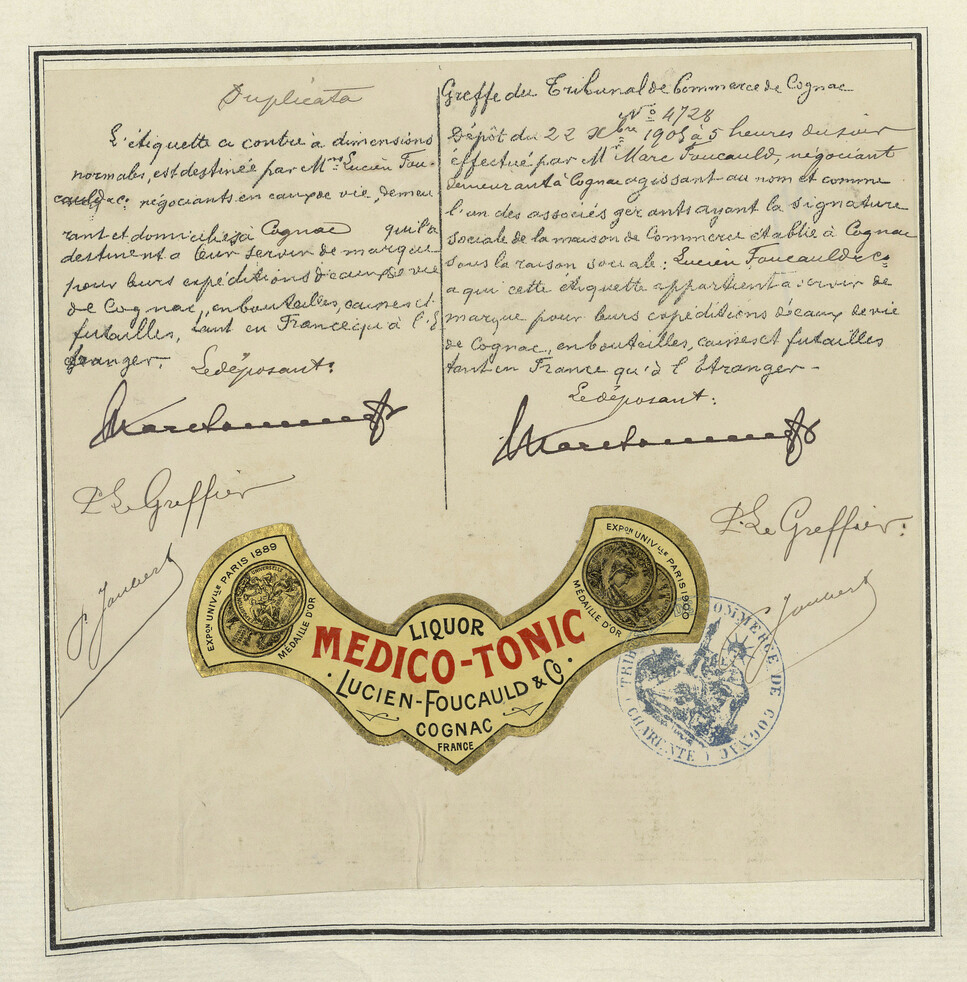 Duplicata
L'étiquette ci contre à dimensions
normales, est destinée par Mrs Lucien Fou-
cauld & Co negociants en eaux de vie, demeu
rant et domiciliés à Cognac qu'ils
destinent a leur servir de marque
pour leurs expéditions d'eaux de vie
de Cognac, en bouteilles, caisses et
futailles, tant en France qu'à l'É
tranger.
Le déposant:
P. Le Greffier
P. Joubert
Greffe du Tribunal de Commerce de Cognac
No 4728
Dépôt du 22 Xbre 1905 à 5 heures du soir
effectué par Mr Marc Foucauld, négociant
demeurant à Cognac agissant au nom et comme
l'un des associés gérants ayant la signature
sociale de la maison de Commerce établie à Cognac
sous la raison sociale: Lucien Foucauld & Co
a qui cette étiquette appartient à servir de
marque pour leurs expéditions d'eaux de vie
de Cognac, en bouteilles, caisses et futailles
tant en France qu'à l'Étranger -
Le déposant:
P. Le Greffier:
P. Joubert
EXPON UNIVLLE PARIS 1889
UNIVERSELLE
MÉDAILLE D'OR
EXPON UNIVLLE PARIS 1900
MÉDAILLE D'OR
LIQUOR
MEDICO-TONIC
· LUCIEN-FOUCAULD & Co ·
COGNAC
FRANCE
COMMERCE DE COGNAC
(CHARENTE)